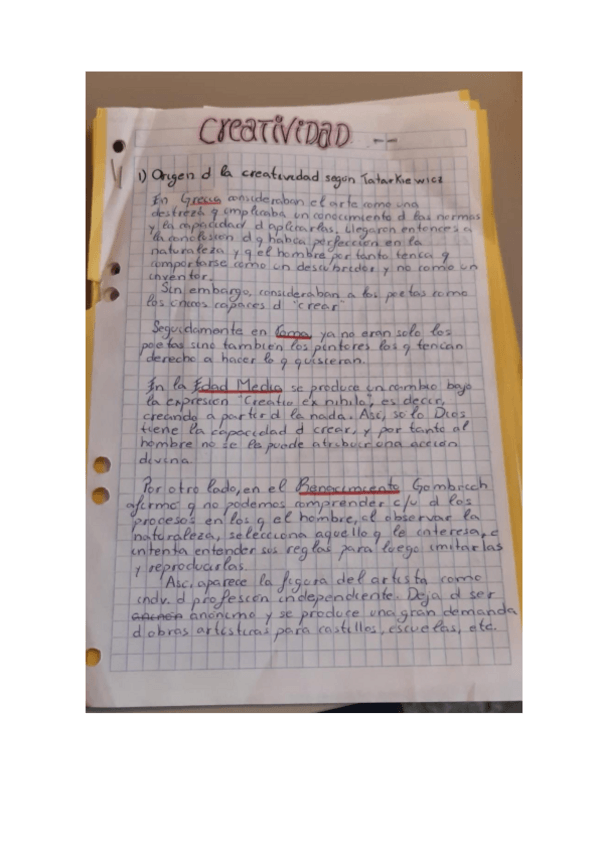 CREATIVIDAD
1) Origen d la creatividad según Tatarkiewicz
En Grecia consideraban el arte como una
destreza q implicaba un conocimiento d las normas
y la capacidad d aplicarlas. Llegaron entonces a
la conclusión d q había perfección en la
naturaleza y q el hombre por tanto tenía q
comportarse como un descubridor y no como un
inventor.
Sin embargo, consideraban a los poetas como
los únicos capaces d "crear"
Seguidamente en Roma ya no eran solo los
poetas sino también los pintores los q tenían
derecho a hacer lo q quisieran.
En la Edad Media se produce un cambio bajo
la expresión "Creatio ex nihilo", es decir,
creando a partir d la nada. Así, solo Dios
tiene la capacidad d crear, y por tanto al
hombre no se le puede atribuir una acción
divina.
Por otro lado, en el Renacimiento Gombrich
afirmó q no podemos comprender c/u d los
procesos en los q el hombre, al observar la
naturaleza, selecciona aquello q le interesa, e
intenta entender sus reglas para luego imitarlas
y reproducirlas.
Así, aparece la figura del artista como
indv. d profesión independiente. Deja d ser
anónimo y se produce una gran demanda
d obras artísticas para castillos, escuelas, etc.